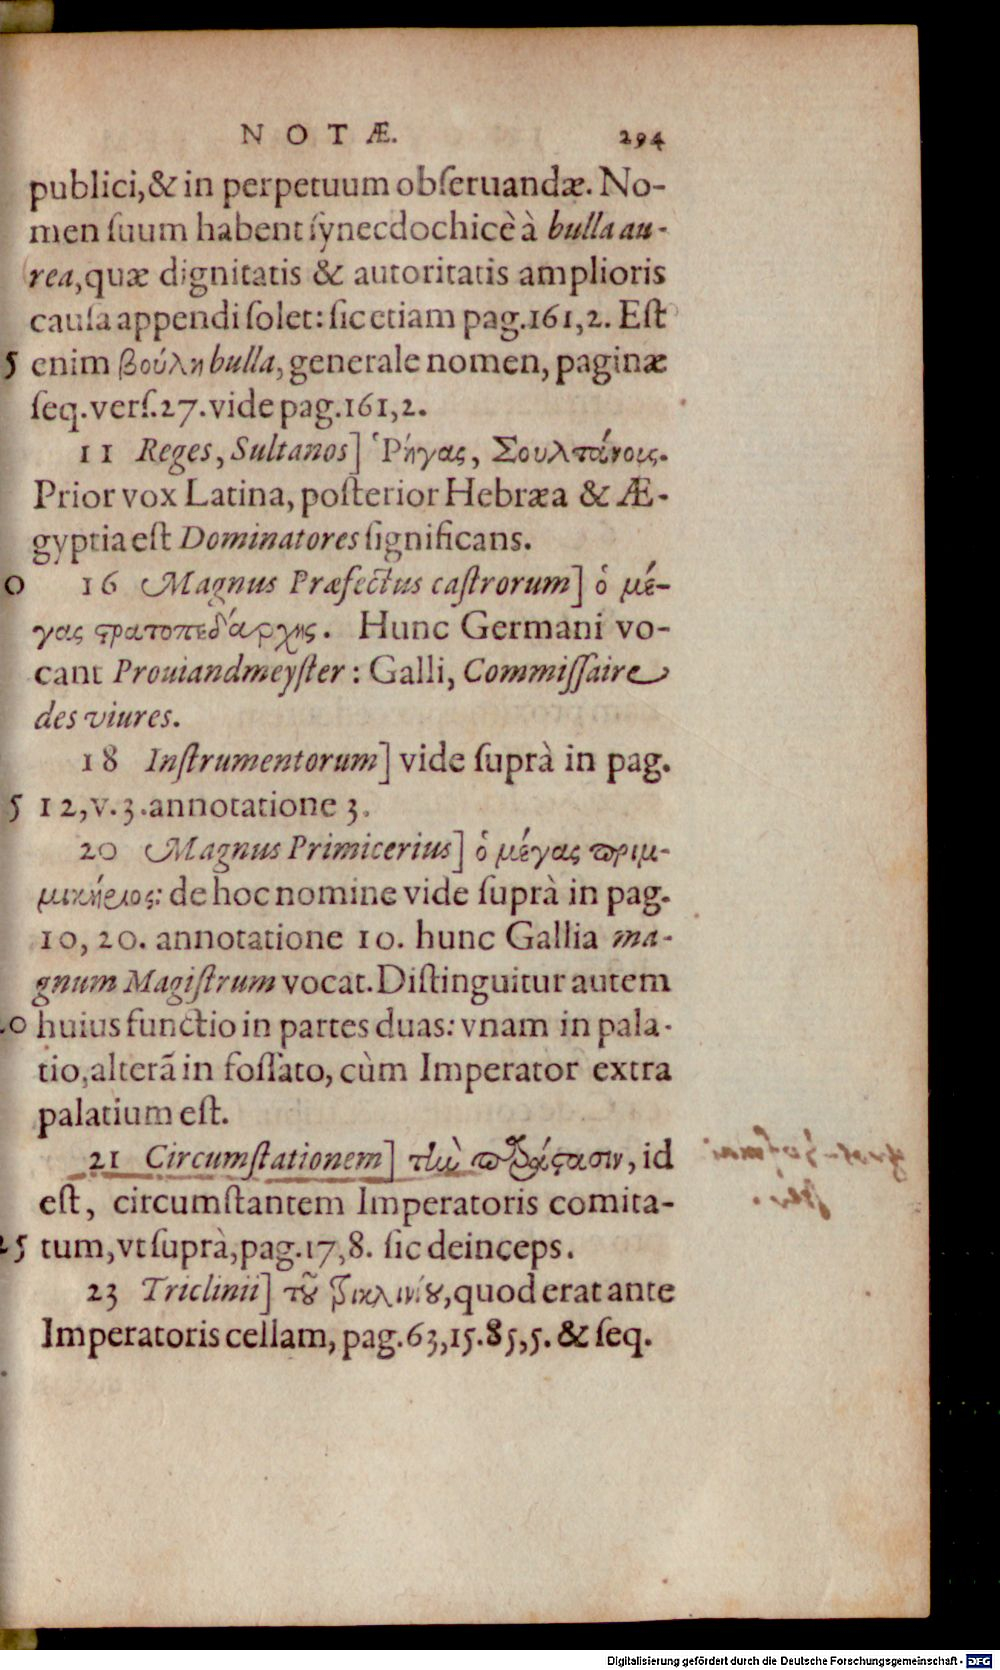 NOTÆ. 294
publici, & in perpetuum obſeruandæ. No-
men ſuum habent ſynecdochicè à bulla au-
rea, quæ dignitatis & autoritatis amplioris
cauſa appendi ſolet: ſic etiam pag.161,2. Eſt
5 enim βούλη bulla, generale nomen, paginæ
ſeq. verſ.27. vide pag.161,2.
11 Reges, Sultanos] Ῥήγας, Σουλτάνοις.
Prior vox Latina, poſterior Hebræa & Æ-
gyptia eſt Dominatores ſignificans.
0 16 Magnus Præfectus caſtrorum] ὁ μέ-
γας ϛρατοπεδάρχης. Hunc Germani vo-
cant Prouiandmeyſter: Galli, Commiſſaire
des viures.
18 Inſtrumentorum] vide ſuprà in pag.
5 12, v.3. annotatione 3.
20 Magnus Primicerius] ὁ μέγας πριμ-
μικήριος: de hoc nomine vide ſuprà in pag.
10, 20. annotatione 10. hunc Gallia ma-
gnum Magiſtrum vocat. Diſtinguitur autem
20 huius functio in partes duas: vnam in pala-
tio, alterã in foſſato, cùm Imperator extra
palatium eſt.
21 Circumſtationem] τὴν παράϛασιν, id
eſt, circumſtantem Imperatoris comita-
25 tum, vt ſuprà, pag.17,8. ſic deinceps.
23 Triclinii] τοῦ τρικλινίου, quod erat ante
Imperatoris cellam, pag.63,15.85,5. & ſeq.
Digitalisierung gefördert durch die Deutsche Forschungsgemeinschaft - DFG